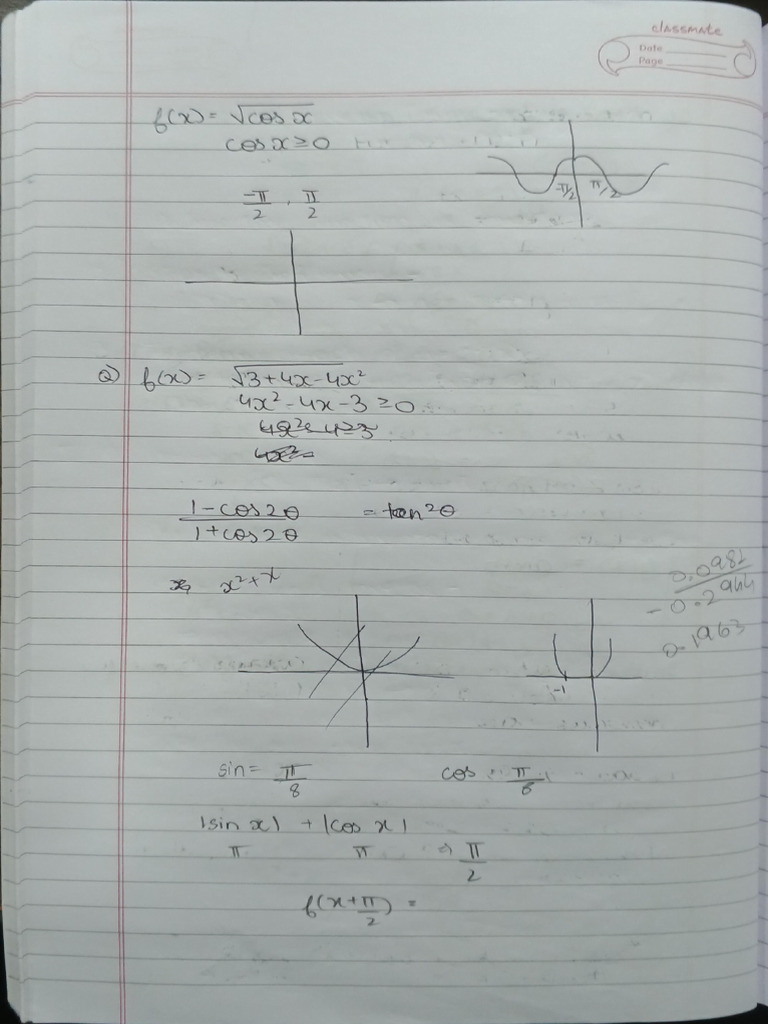 classmate
Date
Page
f(x) = √cos x
cos x ≥ 0
-π/2 , π/2
-π/2 π/2
Q) f(x) = √3+4x-4x²
4x² - 4x - 3 ≥ 0
1 - cos2θ / 1 + cos2θ = tan²θ
x² + x
0.0981
- 0.2944
0.1963
-1
sin = π/8 cos π/8
|sin x| + |cos x|
π π ⇒ π/2
f(x + π/2) =